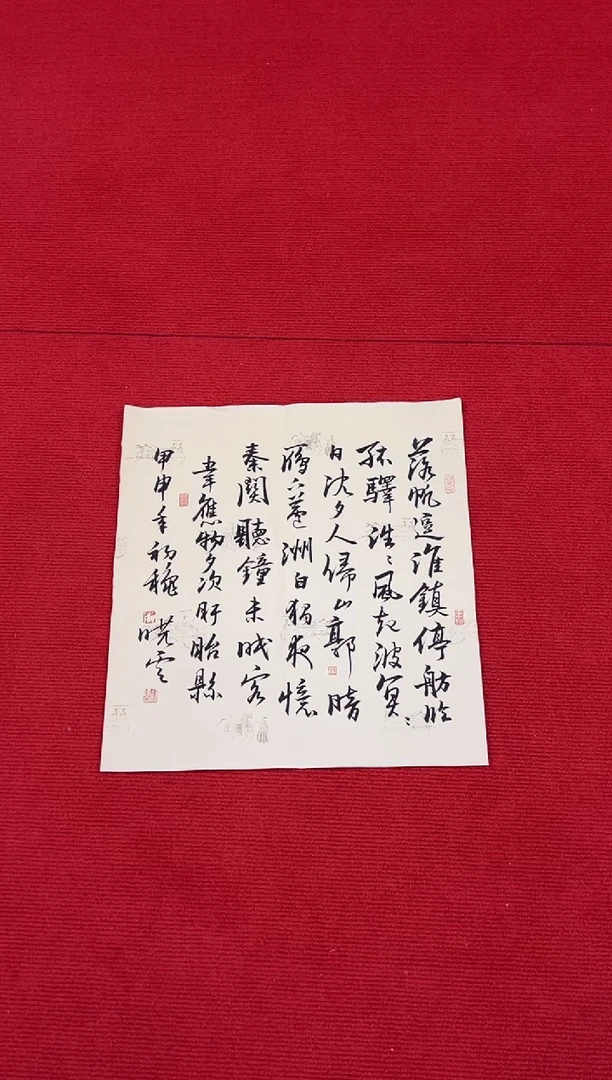 落帆逗淮鎮停舫臨
孤驛浩〻風起波冥〻
日沈夕人歸山郭暗
雁下蘆洲白獨夜憶
秦關聽鐘未眠客
韋應物夕次盱眙縣
甲申年初穐
曉雲